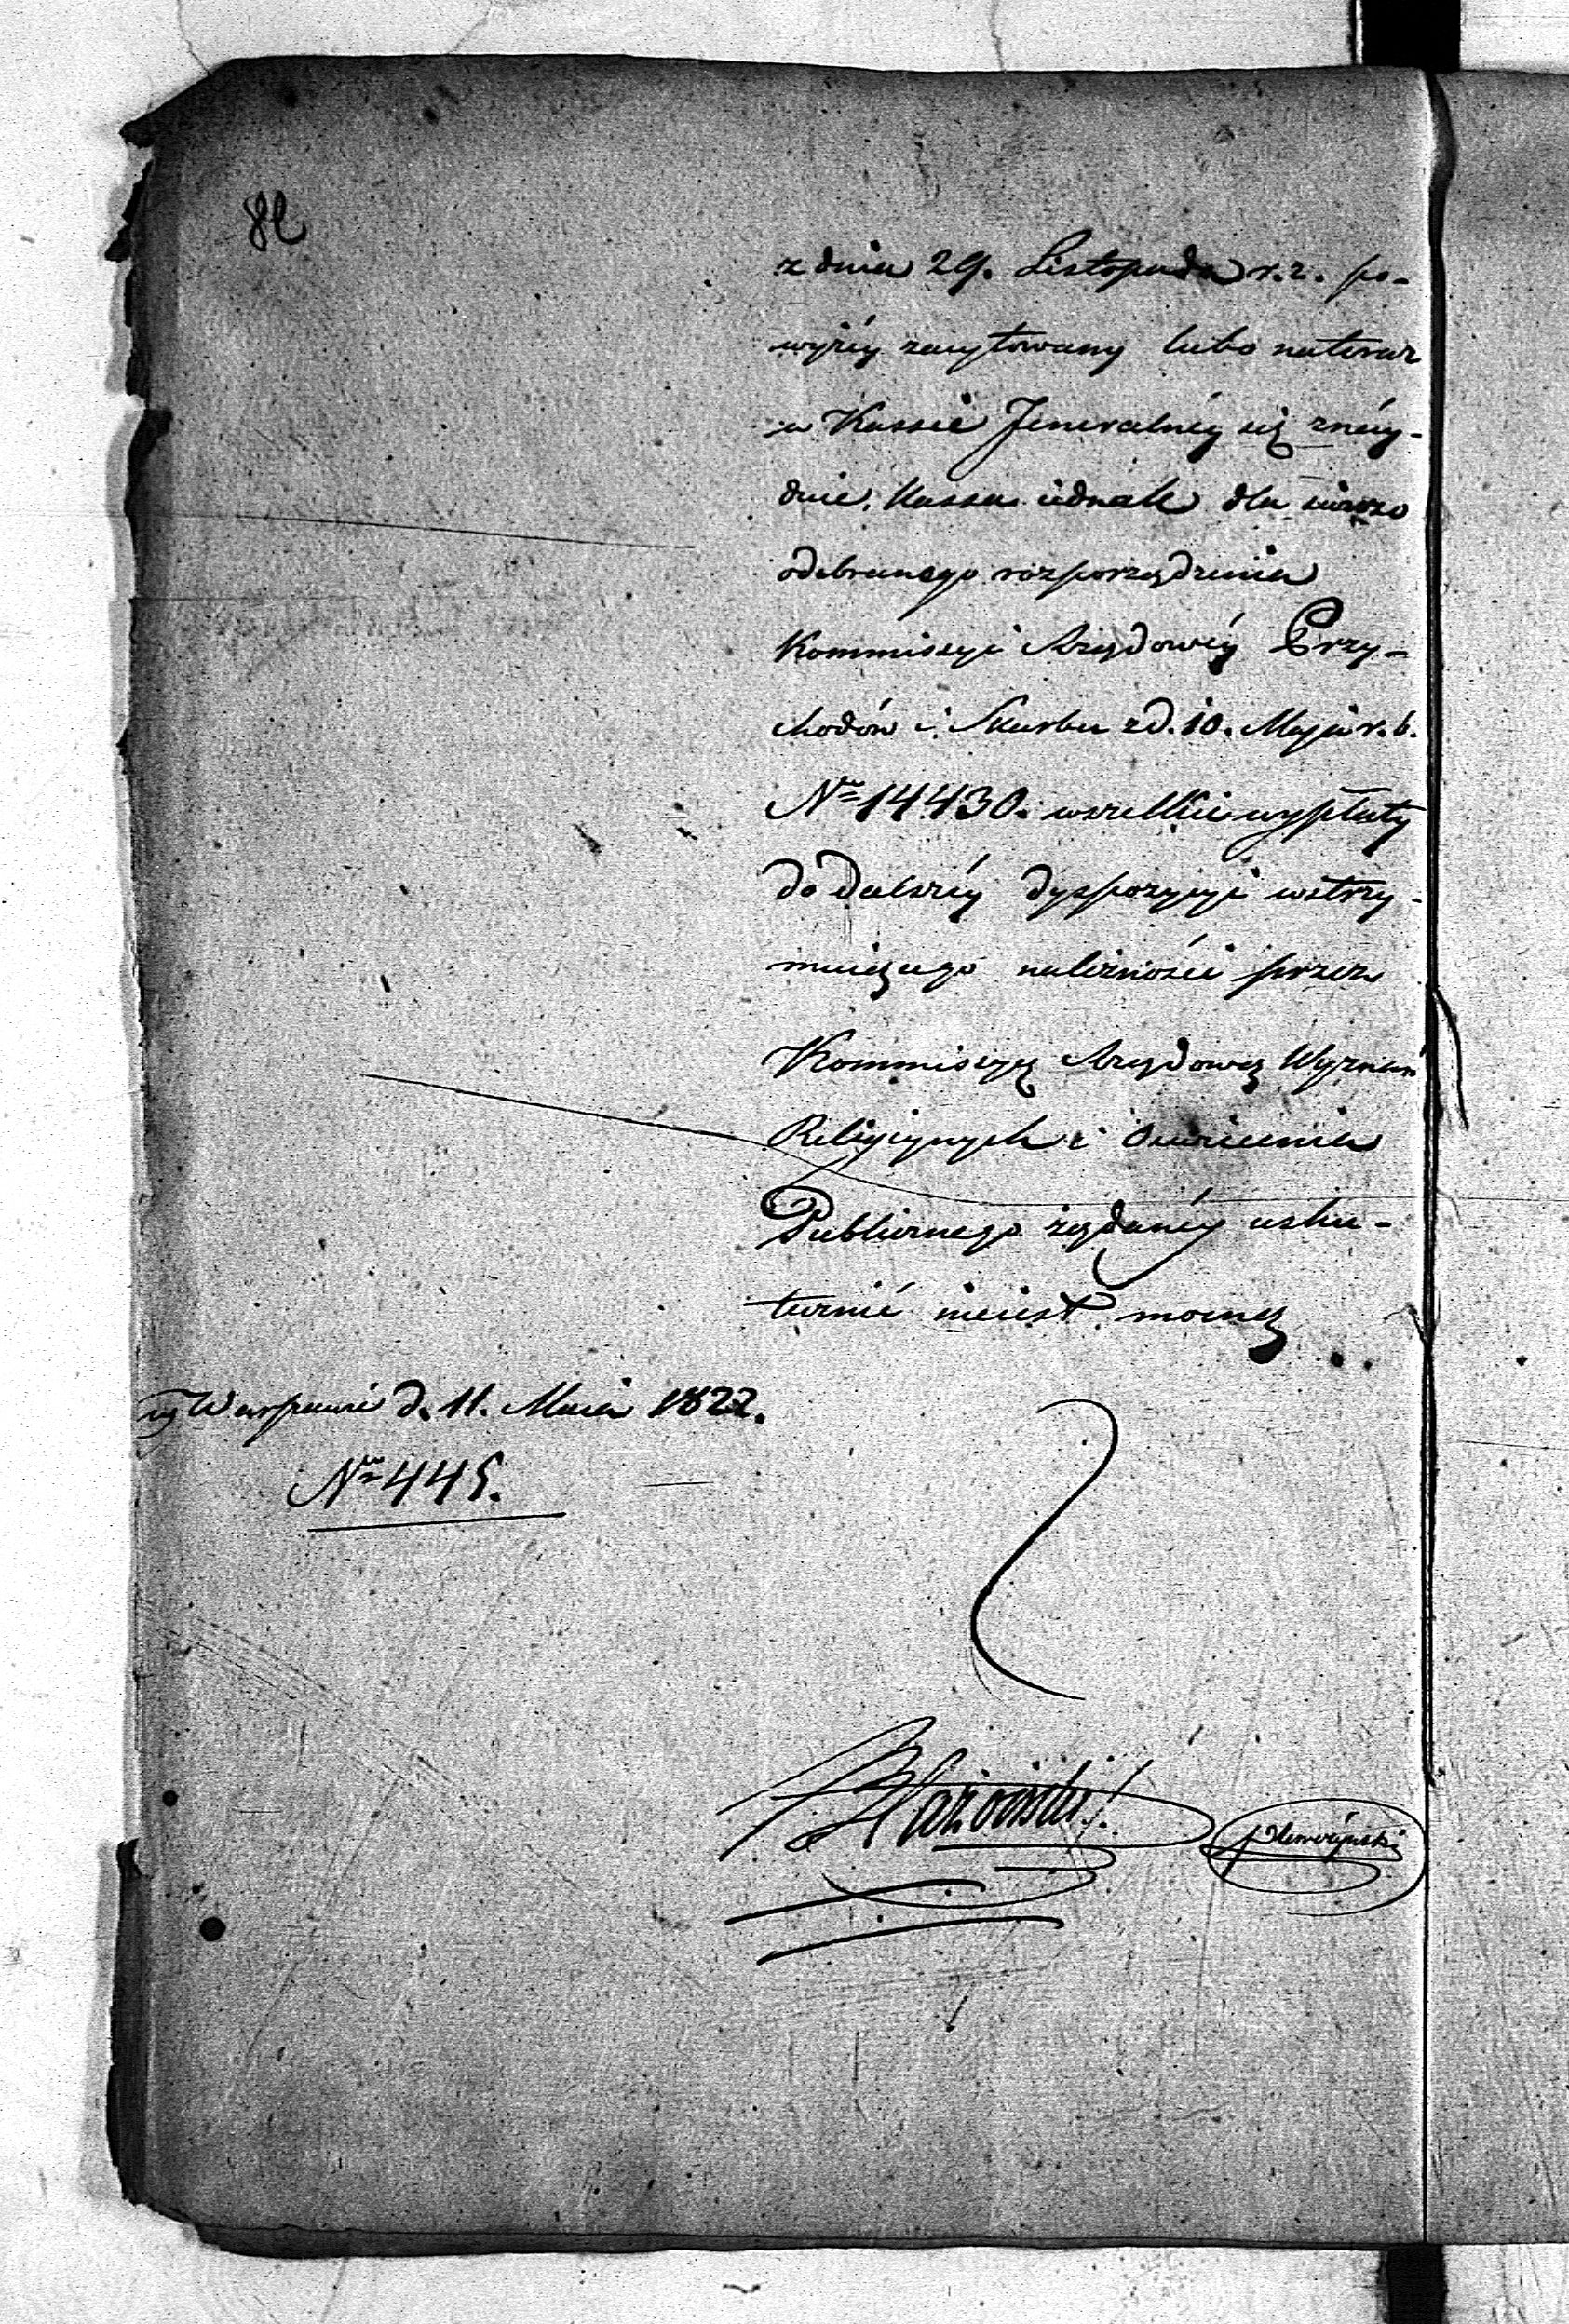 82
z dnia 29. Listopada r. z. po-
wyżéy zacytowany lubo na teraz
w Kassie Jeneralnéy się znéy-
dzie, Kassa iednak dla świeżo
odebranego rozporządzenia
Kommissyi Rządowéy Przy-
chodów i Skarbu z d. 10. Maja r. b.
Nro 14430. wszelkie wypłaty
do dalszéy dyspozycyi wstrzy-
muiącego należności przez
Kommissyą Rządową Wyznań
Religiynych i Oświecenia
Publicznego żądanéy usku-
tecznić nieiest mocną
w Warszawie d. 11. Maia 1822.
Nro 445.